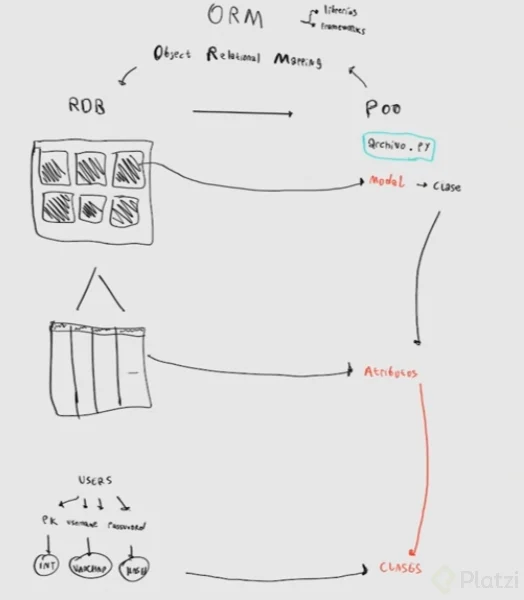 ORM
librerias
frameworks
Object Relational Mapping
RDB
POO
archivo.py
Model → clase
Atributos
USERS
PK username password
INT
VARCHAR
CLASES
Platzi